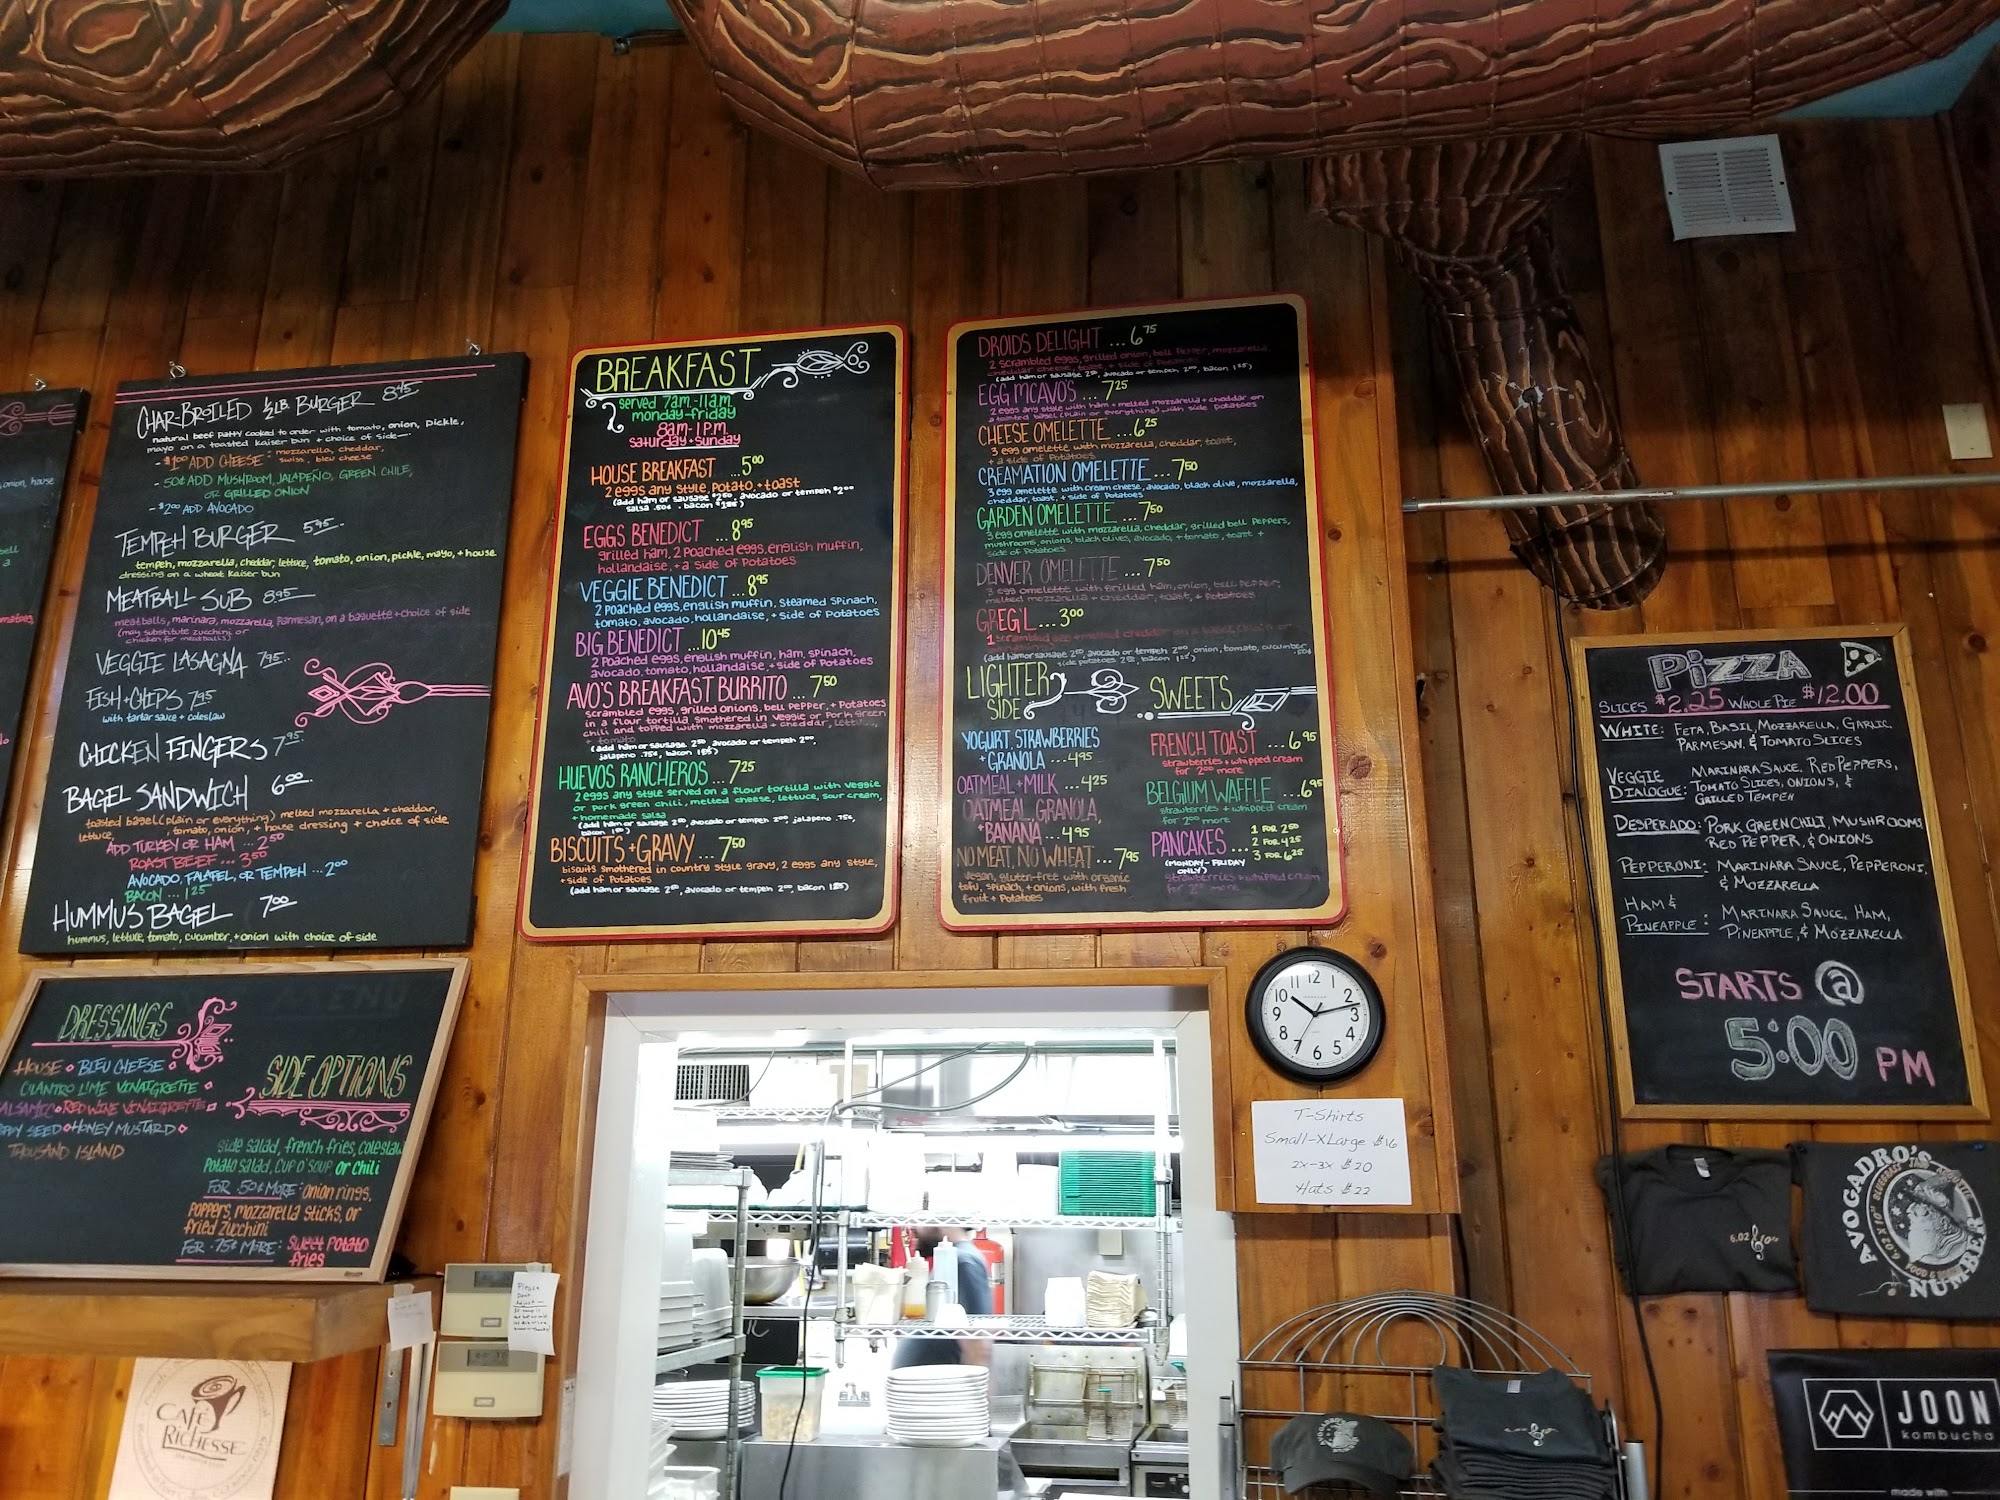 onion, house
bell
a
CHAR-BROILED ½ LB. BURGER 8.45
natural beef patty cooked to order with tomato, onion, pickle,
mayo on a toasted kaiser bun + choice of side
- $1.00 ADD CHEESE: mozzarella, cheddar,
swiss, bleu cheese
- 50¢ ADD MUSHROOM, JALAPEÑO, GREEN CHILE,
OR GRILLED ONION
- $2.00 ADD AVOCADO
TEMPEH BURGER 5.95
tempeh, mozzarella, cheddar, lettuce, tomato, onion, pickle, mayo, + house
dressing on a wheat kaiser bun
MEATBALL SUB 8.95
meatballs, marinara, mozzarella, parmesan, on a baguette + choice of side
(may substitute zucchini or
chicken for meatballs)
VEGGIE LASAGNA 7.95
FISH + CHIPS 7.95
with tartar sauce + coleslaw
CHICKEN FINGERS 7.95
BAGEL SANDWICH 6.00
toasted bagel (plain or everything) melted mozzarella + cheddar,
lettuce, tomato, onion, + house dressing + choice of side
ADD TURKEY OR HAM ... 2.50
ROAST BEEF ... 3.50
AVOCADO, FALAFEL, OR TEMPEH ... 2.00
BACON ... 1.25
HUMMUS BAGEL 7.00
hummus, lettuce, tomato, cucumber, + onion with choice of side
DRESSINGS
HOUSE BLEU CHEESE
CILANTRO LIME VINAIGRETTE
ALSAMIC RED WINE VINAIGRETTE
PPY SEED HONEY MUSTARD
THOUSAND ISLAND
SIDE OPTIONS
side salad, french fries, coleslaw
potato salad, cup o' soup, or chili
FOR .50¢ MORE: onion rings,
poppers, mozzarella sticks, or
fried zucchini
FOR .75¢ MORE: sweet potato
fries
BREAKFAST
served 7am-11am
monday-friday
8am-1p.m.
saturday + sunday
HOUSE BREAKFAST ...5.00
2 eggs any style, potato, + toast
(add ham or sausage $2.50 avocado or tempeh $2.00
salsa .50¢, bacon $1.85)
EGGS BENEDICT ...8.95
grilled ham, 2 poached eggs, english muffin,
hollandaise, + a side of potatoes
VEGGIE BENEDICT ...8.95
2 poached eggs, english muffin, steamed spinach,
tomato, avocado, hollandaise, + side of potatoes
BIG BENEDICT ...10.45
2 poached eggs, english muffin, ham, spinach,
avocado, tomato, hollandaise, + side of potatoes
AVO'S BREAKFAST BURRITO ...7.50
scrambled eggs, grilled onions, bell pepper, + potatoes
in a flour tortilla smothered in veggie or pork green
chili and topped with mozzarella + cheddar, lettuce,
+ tomato
(add ham or sausage 2.50 avocado or tempeh 2.00,
jalapeno .75¢, bacon 1.85)
HUEVOS RANCHEROS ...7.25
2 eggs any style served on a flour tortilla with veggie
or pork green chili, melted cheese, lettuce, sour cream,
+ homemade salsa
(add ham or sausage 2.50, avocado or tempeh 2.00 jalapeno .75¢,
bacon 1.85)
BISCUITS + GRAVY ...7.50
biscuits smothered in country style gravy, 2 eggs any style,
+ side of potatoes
(add ham or sausage 2.50, avocado or tempeh 2.00, bacon 1.85)
DROIDS DELIGHT ...6.75
2 scrambled eggs, grilled onion, bell pepper, mozzarella,
cheddar cheese, toast, + side of potatoes
(add ham or sausage 2.50, avocado or tempeh 2.00, bacon 1.85)
EGG MCAVO'S ...7.25
2 eggs any style with ham + melted mozzarella + cheddar on
a toasted bagel (plain or everything) with side potatoes
CHEESE OMELETTE ...6.25
3 egg omelette with mozzarella, cheddar, toast,
+ a side of potatoes
CREAMATION OMELETTE ...7.50
3 egg omelette with cream cheese, avocado, black olive, mozzarella,
cheddar, toast, + side of potatoes
GARDEN OMELETTE ...7.50
3 egg omelette with mozzarella, cheddar, grilled bell peppers,
mushrooms, onions, black olives, avocado, + tomato, toast +
side of potatoes
DENVER OMELETTE ...7.50
3 egg omelette with grilled ham, onion, bell pepper,
melted mozzarella + cheddar, toast, + potatoes
GREG'L ...3.00
1 scrambled egg + melted cheddar on a bagel (plain or
(add ham or sausage 2.50, avocado or tempeh 2.00, onion, tomato, cucumber .50¢
side potatoes 2.50, bacon 1.85)
LIGHTER
SIDE
YOGURT, STRAWBERRIES
+ GRANOLA ...4.95
OATMEAL + MILK ...4.25
OATMEAL, GRANOLA,
+ BANANA ...4.95
NO MEAT, NO WHEAT ...7.95
vegan, gluten-free with organic
tofu, spinach, + onions, with fresh
fruit + potatoes
SWEETS
FRENCH TOAST ...6.95
strawberries + whipped cream
for 2.00 more
BELGIUM WAFFLE ...6.95
strawberries + whipped cream
for 2.00 more
PANCAKES ... 1 FOR 2.50
2 FOR 4.25
3 FOR 6.25
(MONDAY-FRIDAY
ONLY)
strawberries + whipped cream
for 2.00 more
PIZZA
SLICES $2.25 WHOLE PIE $12.00
WHITE: FETA, BASIL, MOZZARELLA, GARLIC
PARMESAN, & TOMATO SLICES
VEGGIE DIALOGUE: MARINARA SAUCE, RED PEPPERS,
TOMATO SLICES, ONIONS, &
GRILLED TEMPEH
DESPERADO: PORK GREEN CHILI, MUSHROOMS
RED PEPPER, & ONIONS
PEPPERONI: MARINARA SAUCE, PEPPERONI,
& MOZZARELLA
HAM & PINEAPPLE: MARINARA SAUCE, HAM,
PINEAPPLE, & MOZZARELLA
STARTS @
5:00 PM
12 1 2 3 4 5 6 7 8 9 10 11
T-Shirts
Small-XLarge $16
2x-3x $20
Hats $22
6.02 10
AVOGADRO'S
NUMBER
JOON
kombucha
made with
CAFÉ
RICHESSE
Please
Dont
Adjust